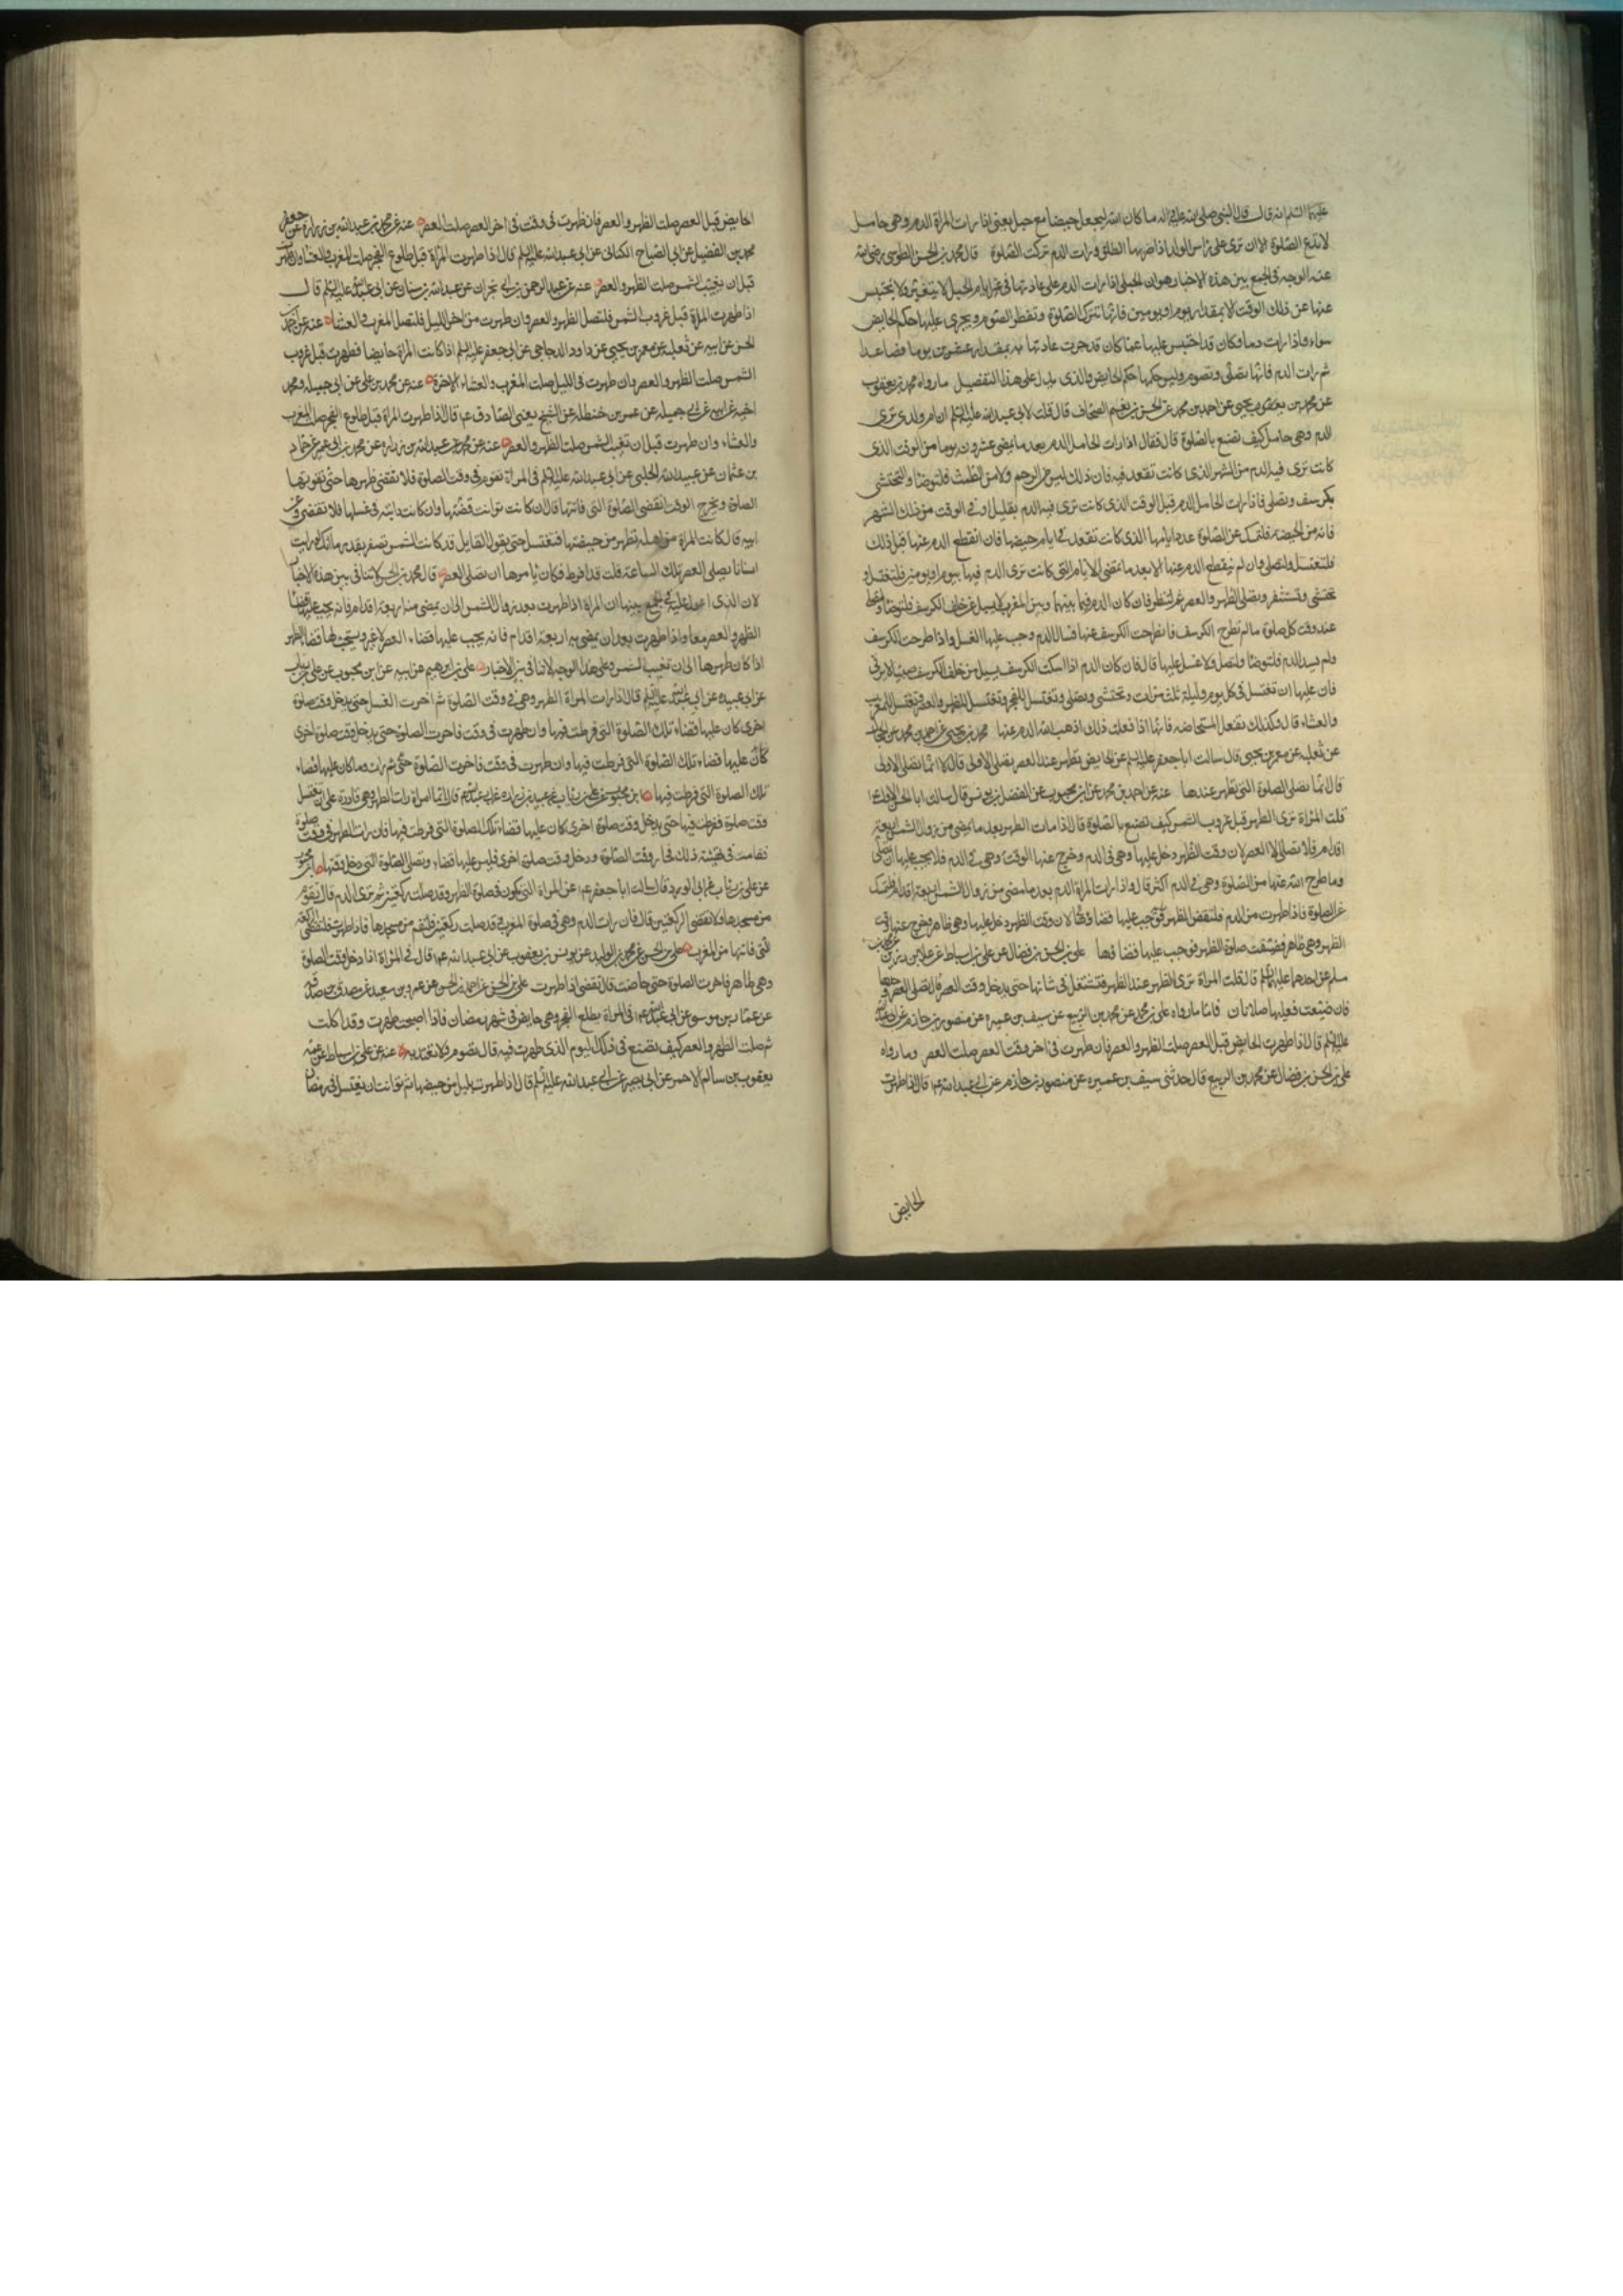 عليهما السلم انه قال قال النبي صلى الله عليه واله ما كان الله ليجعل حيضا مع حبل يعني اذا رات المراة الدم وهي حامل
لا تدع الصلوة الا ان ترى على راس الولد اذا ضربها الطلق ورات الدم تركت الصلوة قال محمد بن الحسن الطوسي رضي الله
عنه الوجه في الجمع بين هذه الاخبار هو ان الحبلى اذا رات الدم على عادتها في غير ايام الحبل لا يتغير ولا يحتبس
عنها عن ذلك الوقت الا بمقدار يوم او يومين فانها تترك الصلوة وتفطر الصوم ويجرى عليها حكم الحايض
سواء فاذا رات دما وكان قد احتبس عليها عما كان قد جرت عادتها به بمقدار عشرين يوما فصاعدا
ثم رات الدم فانها تصلي وتصوم وليس حكمها حكم الحايض والذي يدل على هذا التفصيل ما رواه محمد بن يعقوب
عن محمد بن يحيى عن احمد بن محمد عن الحسين بن نعيم الصحاف قال قلت لابي عبد الله عليه السلم ان ام ولدي ترى
الدم وهي حامل كيف تصنع بالصلوة قال فقال اذا رات الحامل الدم بعد ما يمضي عشرون يوما من الوقت الذي
كانت ترى فيه الدم من الشهر الذي كانت تقعد فيه فان ذلك ليس من الرحم ولا من الطمث فلتوضا وتحتشي
بكرسف وتصلي فاذا رات الحامل الدم قبل الوقت الذي كانت ترى فيه الدم بقليل او في الوقت من ذلك الشهر
فانه من الحيضة فلتمسك عن الصلوة عدد ايامها الذي كانت تقعد في ايام حيضها فان انقطع الدم عنها قبل ذلك
فلتغتسل ولتصل وان لم ينقطع الدم عنها الا بعد ما تمضي الايام التي كانت ترى الدم فيها بيوم او يومين فلتغتسل و
تحتشي وتستثفر وتصلي الظهر والعصر ثم لتنظر فان كان الدم فيما بينهما وبين المغرب لا يسيل من خلف الكرسف فلتوضا ولتصل
عند وقت كل صلوة ما لم تطرح الكرسف فان طرحت الكرسف عنها فسال الدم وجب عليها الغسل واذا طرحت الكرسف
ولم يسل الدم فلتوضا ولتصل ولا غسل عليها قال فان كان الدم اذا امسكت الكرسف يسيل من خلف الكرسف صبيبا لا يرقى
فان عليها ان تغتسل في كل يوم وليلة ثلث مرات وتحتشي وتصلي وتغتسل للفجر وتغتسل للظهر والعصر وتغتسل للمغرب
والعشاء قال وكذلك تفعل المستحاضه فانها اذا فعلت ذلك اذهب الله الدم عنها محمد بن يحيى عن احمد بن محمد عن
عن ثعلبه عن معمر بن يحيى قال سالت ابا جعفر عليه السلم عن الحايض تطهر عند العصر تصلي الاولى قال لا انما تصلي
قال انما تصلي الصلوة التي تطهر عندها عنه عن احمد بن محمد عن ابن محبوب عن الفضل بن يونس قال سالت ابا الحسن الاول ع
قلت المراة ترى الطهر قبل غروب الشمس كيف تصنع بالصلوة قال اذا رات الطهر بعد ما يمضي من زوال الشمس اربعة
اقدام فلا تصلي الا العصر لان وقت الظهر دخل عليها وهي في الدم وخرج عنها الوقت وهي في الدم فلا يجب عليها ان تصلي
وما طرح الله عنها من الصلوة وهي في الدم اكثر قال واذا رات المراة الدم بعد ما مضى من زوال الشمس اربعة اقدام فلتمسك
عن الصلوة فاذا طهرت من الدم فلتقض الظهر لان وقت الظهر دخل عليها وهي طاهر وخرج عنها وقت
الظهر وهي طاهر فضيعت صلوة الظهر فوجب عليها قضاؤها علي بن الحسن بن فضال عن علي بن اسباط عن علا بن رزين
مسلم عن احدهما عليهما السلم قال قلت المراة ترى الطهر عند الظهر فتشتغل في شانها حتى يدخل وقت العصر قال تصلي العصر وحدها
فان ضيعت فعليها صلاتان فاما ما رواه علي بن محمد عن محمد بن الربيع عن سيف بن عميره عن منصور بن حازم عن ابي عبد الله
عليه السلم قال اذا طهرت الحايض قبل العصر صلت الظهر والعصر فان طهرت في اخر وقت العصر صلت العصر وما رواه
علي بن الحسن بن فضال عن محمد بن الربيع قال حدثني سيف بن عميره عن منصور بن حازم عن ابي عبد الله ع قال اذا طهرت
الحايض
الحايض قبل العصر صلت الظهر والعصر فان طهرت في وقت في اخر العصر صلت العصر عنه عن محمد بن عبد الله بن زراره عن
محمد بن الفضيل عن ابي الصباح الكناني عن ابي عبد الله عليه السلم قال اذا طهرت المراة قبل طلوع الفجر صلت المغرب والعشا وان طهرت
قبل ان تغيب الشمس صلت الظهر والعصر عنه عن عبد الرحمن بن ابي نجران عن عبد الله بن سنان عن ابي عبد الله عليه السلم قال
اذا طهرت المراة قبل غروب الشمس فلتصل الظهر والعصر وان طهرت من اخر الليل فلتصل المغرب والعشا عنه عن احمد بن
الحسن عن ابيه عن ثعلبه عن معمر بن يحيى عن داود الدجاجي عن ابي جعفر عليه السلم اذا كانت المراة حايضا فطهرت قبل غروب
الشمس صلت الظهر والعصر وان طهرت في الليل صلت المغرب والعشاء الاخرة عنه عن محمد بن علي عن ابي جميله ومحمد
اخيه عن ابيه عن ابي جميله عن عمر بن حنظله عن الشيخ يعني الصادق ع قال اذا طهرت المراة قبل طلوع الفجر صلت المغرب
والعشاء وان طهرت قبل ان تغيب الشمس صلت الظهر والعصر عنه عن محمد بن عبد الله بن زراره عن محمد بن ابي عمير عن حماد
بن عثمان عن عبيد الله الحلبي عن ابي عبد الله عليه السلم في المراة تقوم في وقت الصلوة فلا تقضي طهرها حتى تفوتها
الصلوة ويخرج الوقت اتقضي الصلوة التي فاتتها قال ان كانت توانت قضتها وان كانت دايبة في غسلها فلا تقضي وعن
ابيه قال كانت المراة من اهله تطهر من حيضتها فتغتسل حتى يقول القايل قد كادت الشمس تصفر بقدر ما انك لو رايت
انسانا يصلي العصر تلك الساعة قلت قد افرط فكان يامرها ان تصلي العصر قال محمد بن الحسن لا تنافي بين هذه الاخبار
لان الذي اعول عليه في الجمع بينها ان المراة اذا طهرت بعد زوال الشمس الى ان يمضي منه اربعة اقدام فانه يجب عليها قضا
الظهر والعصر معا واذا طهرت بعد ان يمضي اربعة اقدام فانه يجب عليها قضاء العصر لا غير ويستحب لها قضا الظهر
اذا كان طهرها الى ان تغيب الشمس وعلى هذا الوجه لا تنافي بين الاخبار علي بن ابرهيم عن ابيه عن ابن محبوب عن علي بن رئاب
عن ابي عبيده عن ابي عبد الله عليه السلم قال اذا رات المراة الطهر وهي في وقت الصلوة ثم اخرت الغسل حتى يدخل وقت صلوة
اخرى كان عليها قضاء تلك الصلوة التي فرطت فيها وان طهرت في وقت فاخرت الصلوة حتى يدخل وقت صلوة اخرى
كان عليها قضاء تلك الصلوة التي فرطت فيها وان طهرت في وقت فاخرت الصلوة حتى ثم رات دما كان عليها قضاء
تلك الصلوة التي فرطت فيها ابن محبوب عن علي بن رئاب عن عبيد بن زراره عن ابي عبد الله ع قال ايما امراة رات الطهر وهي قادرة على ان تغتسل
وقت صلوة ففرطت فيها حتى يدخل وقت صلوة اخرى كان عليها قضاء تلك الصلوة التي فرطت فيها فان رات الطهر في وقت صلوة
فقامت في تهيئة ذلك فجاز وقت الصلوة ودخل وقت صلوة اخرى فليس عليها قضاء وتصلي الصلوة التي دخل وقتها ابن محبوب
عن علي بن رئاب عن ابي الورد قال سالت ابا جعفر ع عن المراة التي تكون في صلوة الظهر وقد صلت ركعتين ثم ترى الدم قال تقوم
من مسجدها ولا تقضي الركعتين قال فان رات الدم وهي في صلوة المغرب وقد صلت ركعتين فلتقم من مسجدها فاذا طهرت فلتقض الركعة
التي فاتتها من المغرب علي بن الحسن عن محمد بن الوليد عن يونس بن يعقوب عن ابي عبد الله ع قال في المراة اذا دخل وقت الصلوة
وهي طاهر فاخرت الصلوة حتى حاضت قال تقضي اذا طهرت علي بن الحسن عن احمد بن الحسن عن عمرو بن سعيد عن مصدق بن صدقه
عن عمار بن موسى عن ابي عبد الله ع في المراة يطلع الفجر وهي حايض في شهر رمضان فاذا اصبحت طهرت وقد اكلت
ثم صلت الظهر والعصر كيف تصنع في ذلك اليوم الذي طهرت فيه قال تصوم ولا تعتد به عنه عن علي بن اسباط عن عمه
يعقوب بن سالم الاحمر عن ابي بصير عن ابي عبد الله عليه السلم قال اذا طهرت بليل من حيضها ثم توانت ان تغتسل في رمضان